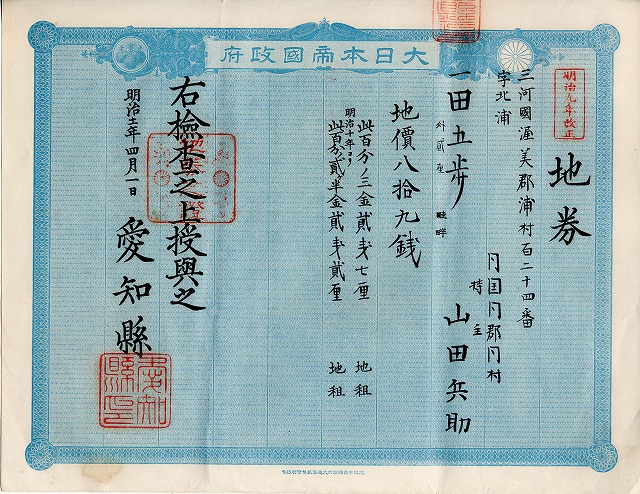 大日本帝國政府
明治九年改正
地券
三河國渥美郡浦村百二十四番
字北浦
同国同郡同村
持主 山田兵助
一田五歩
外貳歩 畦畔
地價八拾九錢
此百分ノ三金貳銭七厘 地租
明治十年ヨリ
此百分ノ貳半金貳銭貳厘 地租
右撿査之上授與之
明治十二年四月一日
愛知縣
愛知縣印